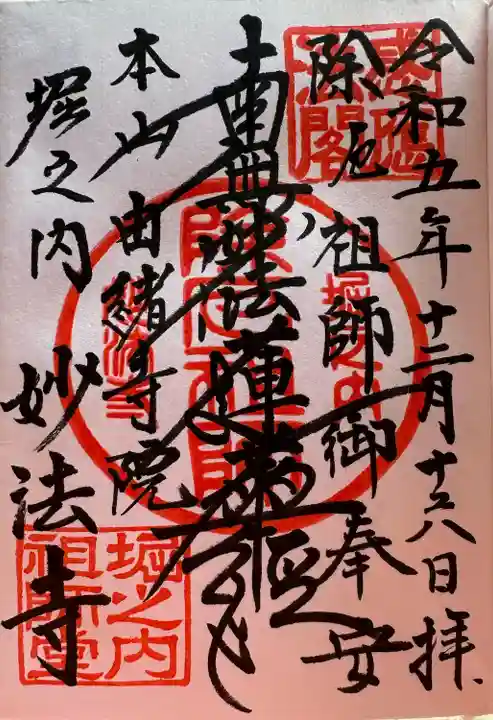 令和五年十二月十六日拝
除厄祖師御奉安
南無妙法蓮華経
本山由緒寺院
堀之内妙法寺
感應
法閣
堀之内
除厄祖師
堀之内
祖師堂